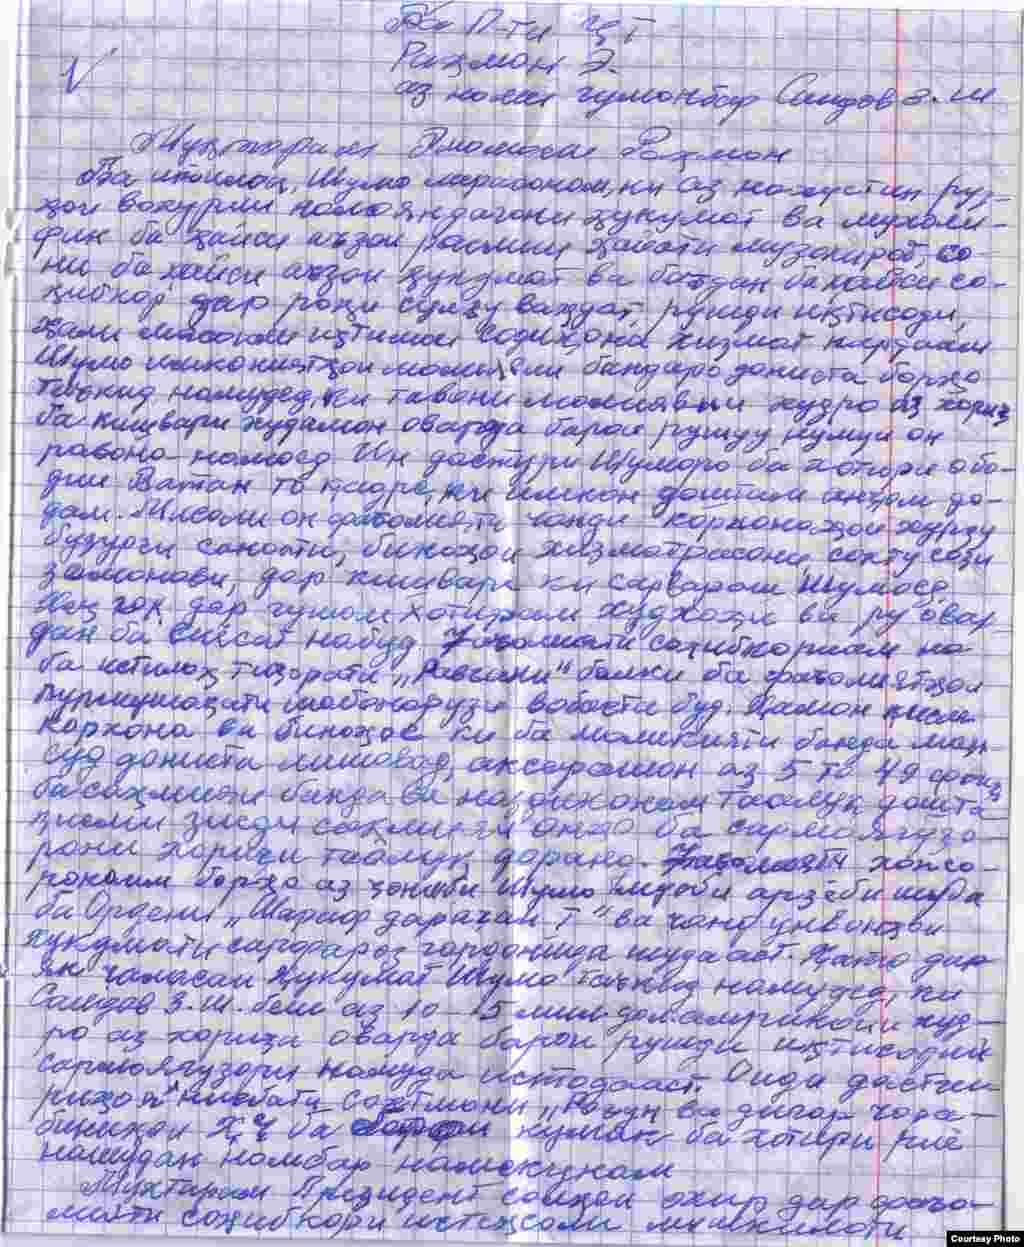 Ба П-ти ҶТ
Раҳмон Э.
аз номи гумонбар Саидов З.Ш
Муҳтарам Эмомалӣ Раҳмон
Ба итилоъ, Шумо мерасонам, ки аз нахустин рӯ-
ҳои вохурии намояндагони ҳукумат ва мухоли-
фин ба ҳайси аъзои расмии ҳайати музокирот, со-
ни ба ҳайси аъзои ҳукумат ва баъдан ба ҳайси со-
ҳибкор дар роҳи сулҳу ваҳдат, рушди иқтисоди,
ҳали масоили иҷтимои содиқона хизмат кардаам
Шумо имкониятҳои молиявии бандаро дониста борҳо
таъкид намудед, ки тавони молиявии худро аз хориҷ
ба кишвари худамон оварда барои рушду нумуи он
равона намоед Ин дастури Шуморо ба хотири обо-
дии Ватан то қадре, ки имкон доштам анҷом до-
дам. Мисоли он фаъолияти чанди корхонаҳои хурду
бузурги саноати, биноҳои хизматрасони, сохту сози
замонави, дар кишваре ки сарвараш Шумоед.
Ҳеҷ гоҳ дар гушаи хотирам худхоҳи ва рӯ овар
дан ба сиёсат набуд. Фаъолияти соҳибкориам на
ба истилоҳ тиҷорати "Равғани" балки ба фаъолиятҳои
пурмашаққати шабонарузи вобаста буд. Ҳамон қисми
корхона ва биноҳое ки ба моликияти банда ман-
суб дониста мешавад, аксарашон аз 5 то 49 фоиз
ба саҳмияи банда ва наздиконам таалуқ дошта
қисми зиёди саҳмияи онҳо ба сармоягузо
рони хориҷи таалуқ доранд. Фаъолияти хоксо-
ронаам борҳо аз ҷониби Шумо хуби арзёби шуда
ба Ордени "Шараф дараҷаи I" ва чанд унвонҳои
ҳукумати сарфароз гардонида шудааст. Ҳатто дар
як ҷаласаи ҳукумат Шумо таъкид намудед, ки
Саидов З.Ш. беш аз 10-15 млн. дол. америкоии худ-
ро аз хориҷа оварда барои рушди иқтисодиёт
сармоягузори намуда истодааст. Оиди дастги
риҳои нисбати сохтмони "Роғун ва дигар чора-
биниҳои ҲҶ ба кумак ба хотири риё
нашудан номбар намекунам
Мухтарам Президент солҳои охир дар фаъо-
лияти соҳибкори истеҳсоли мушкилоти